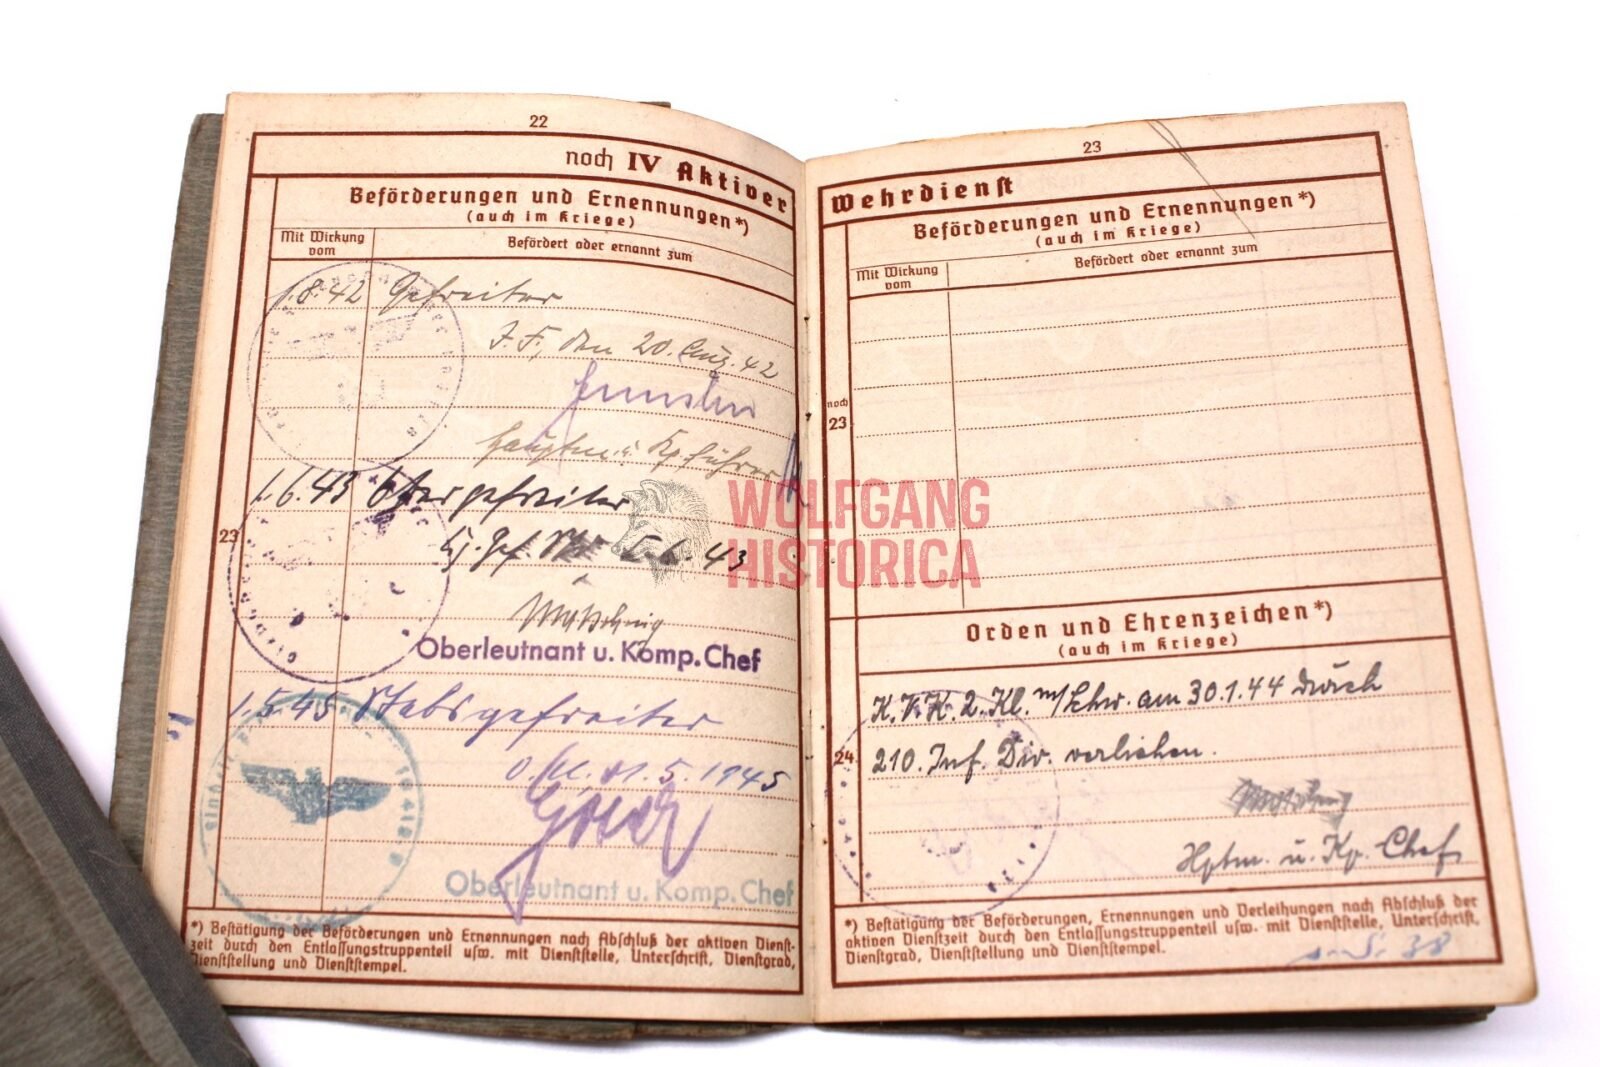 22
noch IV Aktiver
Beförderungen und Ernennungen*)
(auch im Kriege)
Mit Wirkung
vom
Befördert oder ernannt zum
1.8.42 Gefreiter
den 20. Aug. 42
Hauptm. u. Kp. führer
1.6.43 Obergefreiter
23
43
Oberleutnant u. Komp. Chef
1.5.45 Stabsgefreiter
5. 1945
Oberleutnant u. Komp. Chef
*) Bestätigung der Beförderungen und Ernennungen nach Abschluß der aktiven Dienst-
zeit durch den Entlassungstruppenteil usw. mit Dienststelle, Unterschrift, Dienstgrad,
Dienststellung und Dienststempel.
23
Wehrdienst
Beförderungen und Ernennungen*)
(auch im Kriege)
Mit Wirkung
vom
Befördert oder ernannt zum
noch
23
Orden und Ehrenzeichen*)
(auch im Kriege)
K.V.K. 2. Kl. m/Schw. am 30.1.44 durch
24
210. Inf. Div. verliehen.
Hptm. u. Kp. Chef
*) Bestätigung der Beförderungen, Ernennungen und Verleihungen nach Abschluß der
aktiven Dienstzeit durch den Entlassungstruppenteil usw. mit Dienststelle, Unterschrift,
Dienstgrad, Dienststellung und Dienststempel.
WOLFGANG
HISTORICA